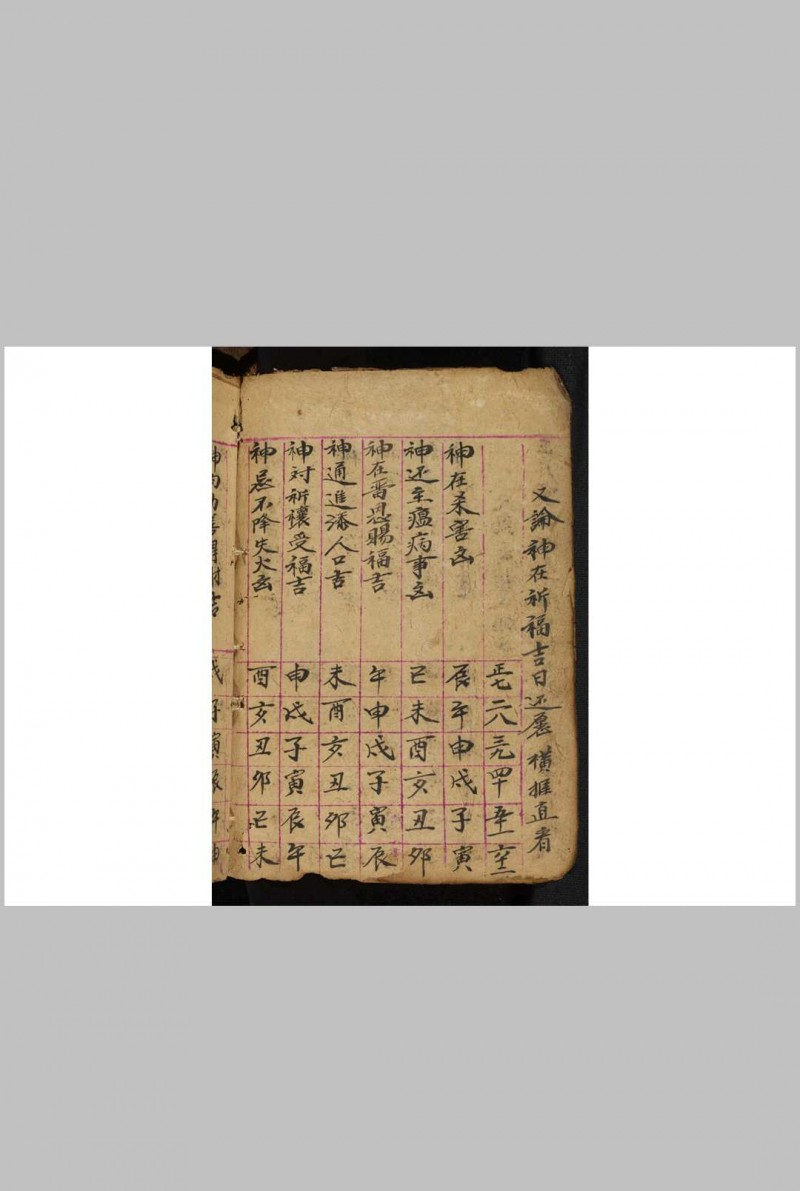 又論神在祈福吉日还愿 橫推直看
正七 二八 三九 四十 五十一 六十二
神在杀害凶 辰 午 申 戌 子 寅
神还至瘟病事凶 巳 未 酉 亥 丑 卯
神在晋恩賜福吉 午 申 戌 子 寅 辰
神通進添人口吉 未 酉 亥 丑 卯 巳
神对祈禳受福吉 申 戌 子 寅 辰 午
神忌不降失火凶 酉 亥 丑 卯 巳 未
吉 戌 子 寅 辰 午 申